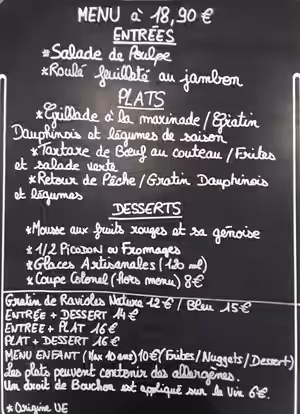 MENU à 18,90 €
ENTRÉES
*Salade de Poulpe
*Roulé feuilleté au jambon
PLATS
*Grillade à la marinade / Gratin
Dauphinois et légumes de saison
*Tartare de Bœuf au couteau / Frites
et salade verte
*Retour de Pêche / Gratin Dauphinois
et légumes
DESSERTS
*Mousse aux fruits rouges et sa génoise
*1/2 PICODON ou FROMAGES
*Glaces Artisanales (120 ml)
*Coupe Colonel (hors menu) 8€
Gratin de Ravioles Nature 12€ / Bleu 15€
ENTRÉE + DESSERT 14€
ENTRÉE + PLAT 16€
PLAT + DESSERT 16€
MENU ENFANT (Max 10 ans) 10€ (Frites/Nuggets/Dessert)
Les plats peuvent contenir des allergènes.
Un droit de Bouchon est appliqué sur le Vin 6€.
* Origine UE